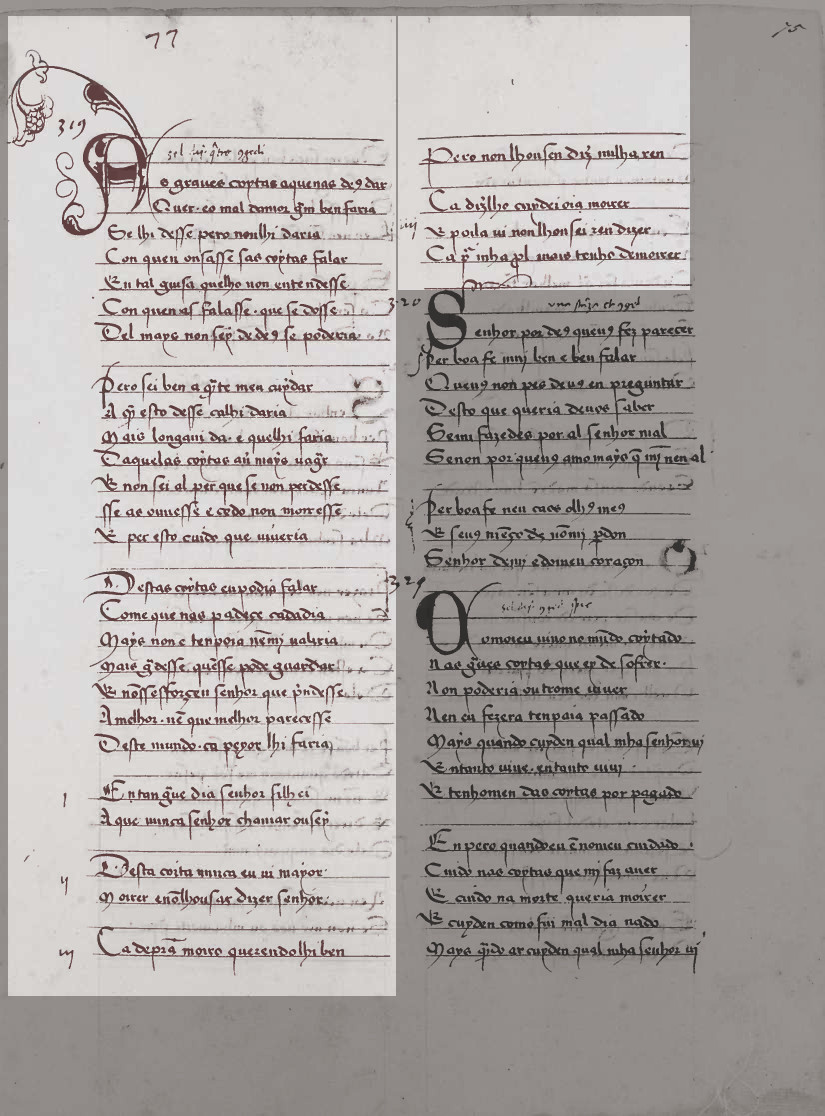 77
75
319
A
o graves coytas aquenas deꝯ dar
Quer eo mal damor gm̃ ben faria
Se lhi desse pero nonlhi daria
Con quen ousasse sas coytas falar
En tal guisa quelho non entendesse
Con quen as falasse que se dosse
Del mays non sey de deꝯ se poderia
Pero sei ben a
esto desse calhi daria
Mais longaui da e quelhi faria
Daquelas coytas
mays
E non sei al per que se non perdesse
sse as ouuesse e cedo non morresse
E per esto cuido que uiueria
Destas coytas eu podia falar
Come que nas padeçe cadadia
Mays non e tenpoia nẽmi ualiria
Mais
podesse guardar
E
senhor que
A melhor nẽ que melhor parecesse
Deste mundo ca peyor lhi faria
I
En tan gue dia senhor filhei
A que nunca senhor chamar ousey
ij
Desta coita nunca eu ui mayor
Moirer enõ lhousar dizer senhor
iij
Ca
moiro querendolhi ben
Pero non lhousen diz nulha ren
Ca dizlho cuydei oia moirer
iiij
E poila ui non lhousei ren dizer
mais tenho de moirer
320
S
enhor por deꝯ quenꝯ fez pareçer
Per boa fe mui ben e ben falar
Quenꝯ non pes deuꝯ en preguntar
Desto que queria deuos saber
Semi fazedes por al senhor mal
Senon por quenꝯ amo mays q̃ mĩ nen al
Per boa fe neu caos olhꝯ meꝯ
E
Senhor demi e domeu coraçon
321
O
u moireu uiuo no mũdo coytado
nas
coytas que ey de sofrer
Non poderia outrome uiuer
Nen eu fezera tenpaia passado
Mays quando cuyden qual mha senhor ui
Entanto uiue entanto uiui
E tenhomen das coytas por pagado
En pero quandoeu ẽ nomeu cuidado
Cuido nas coytas que mi faz auer
E cuido na morte queria moirer
E cuyden como fui mal dia nado
Mays qñdo ar cuyden qual mha senhor ui